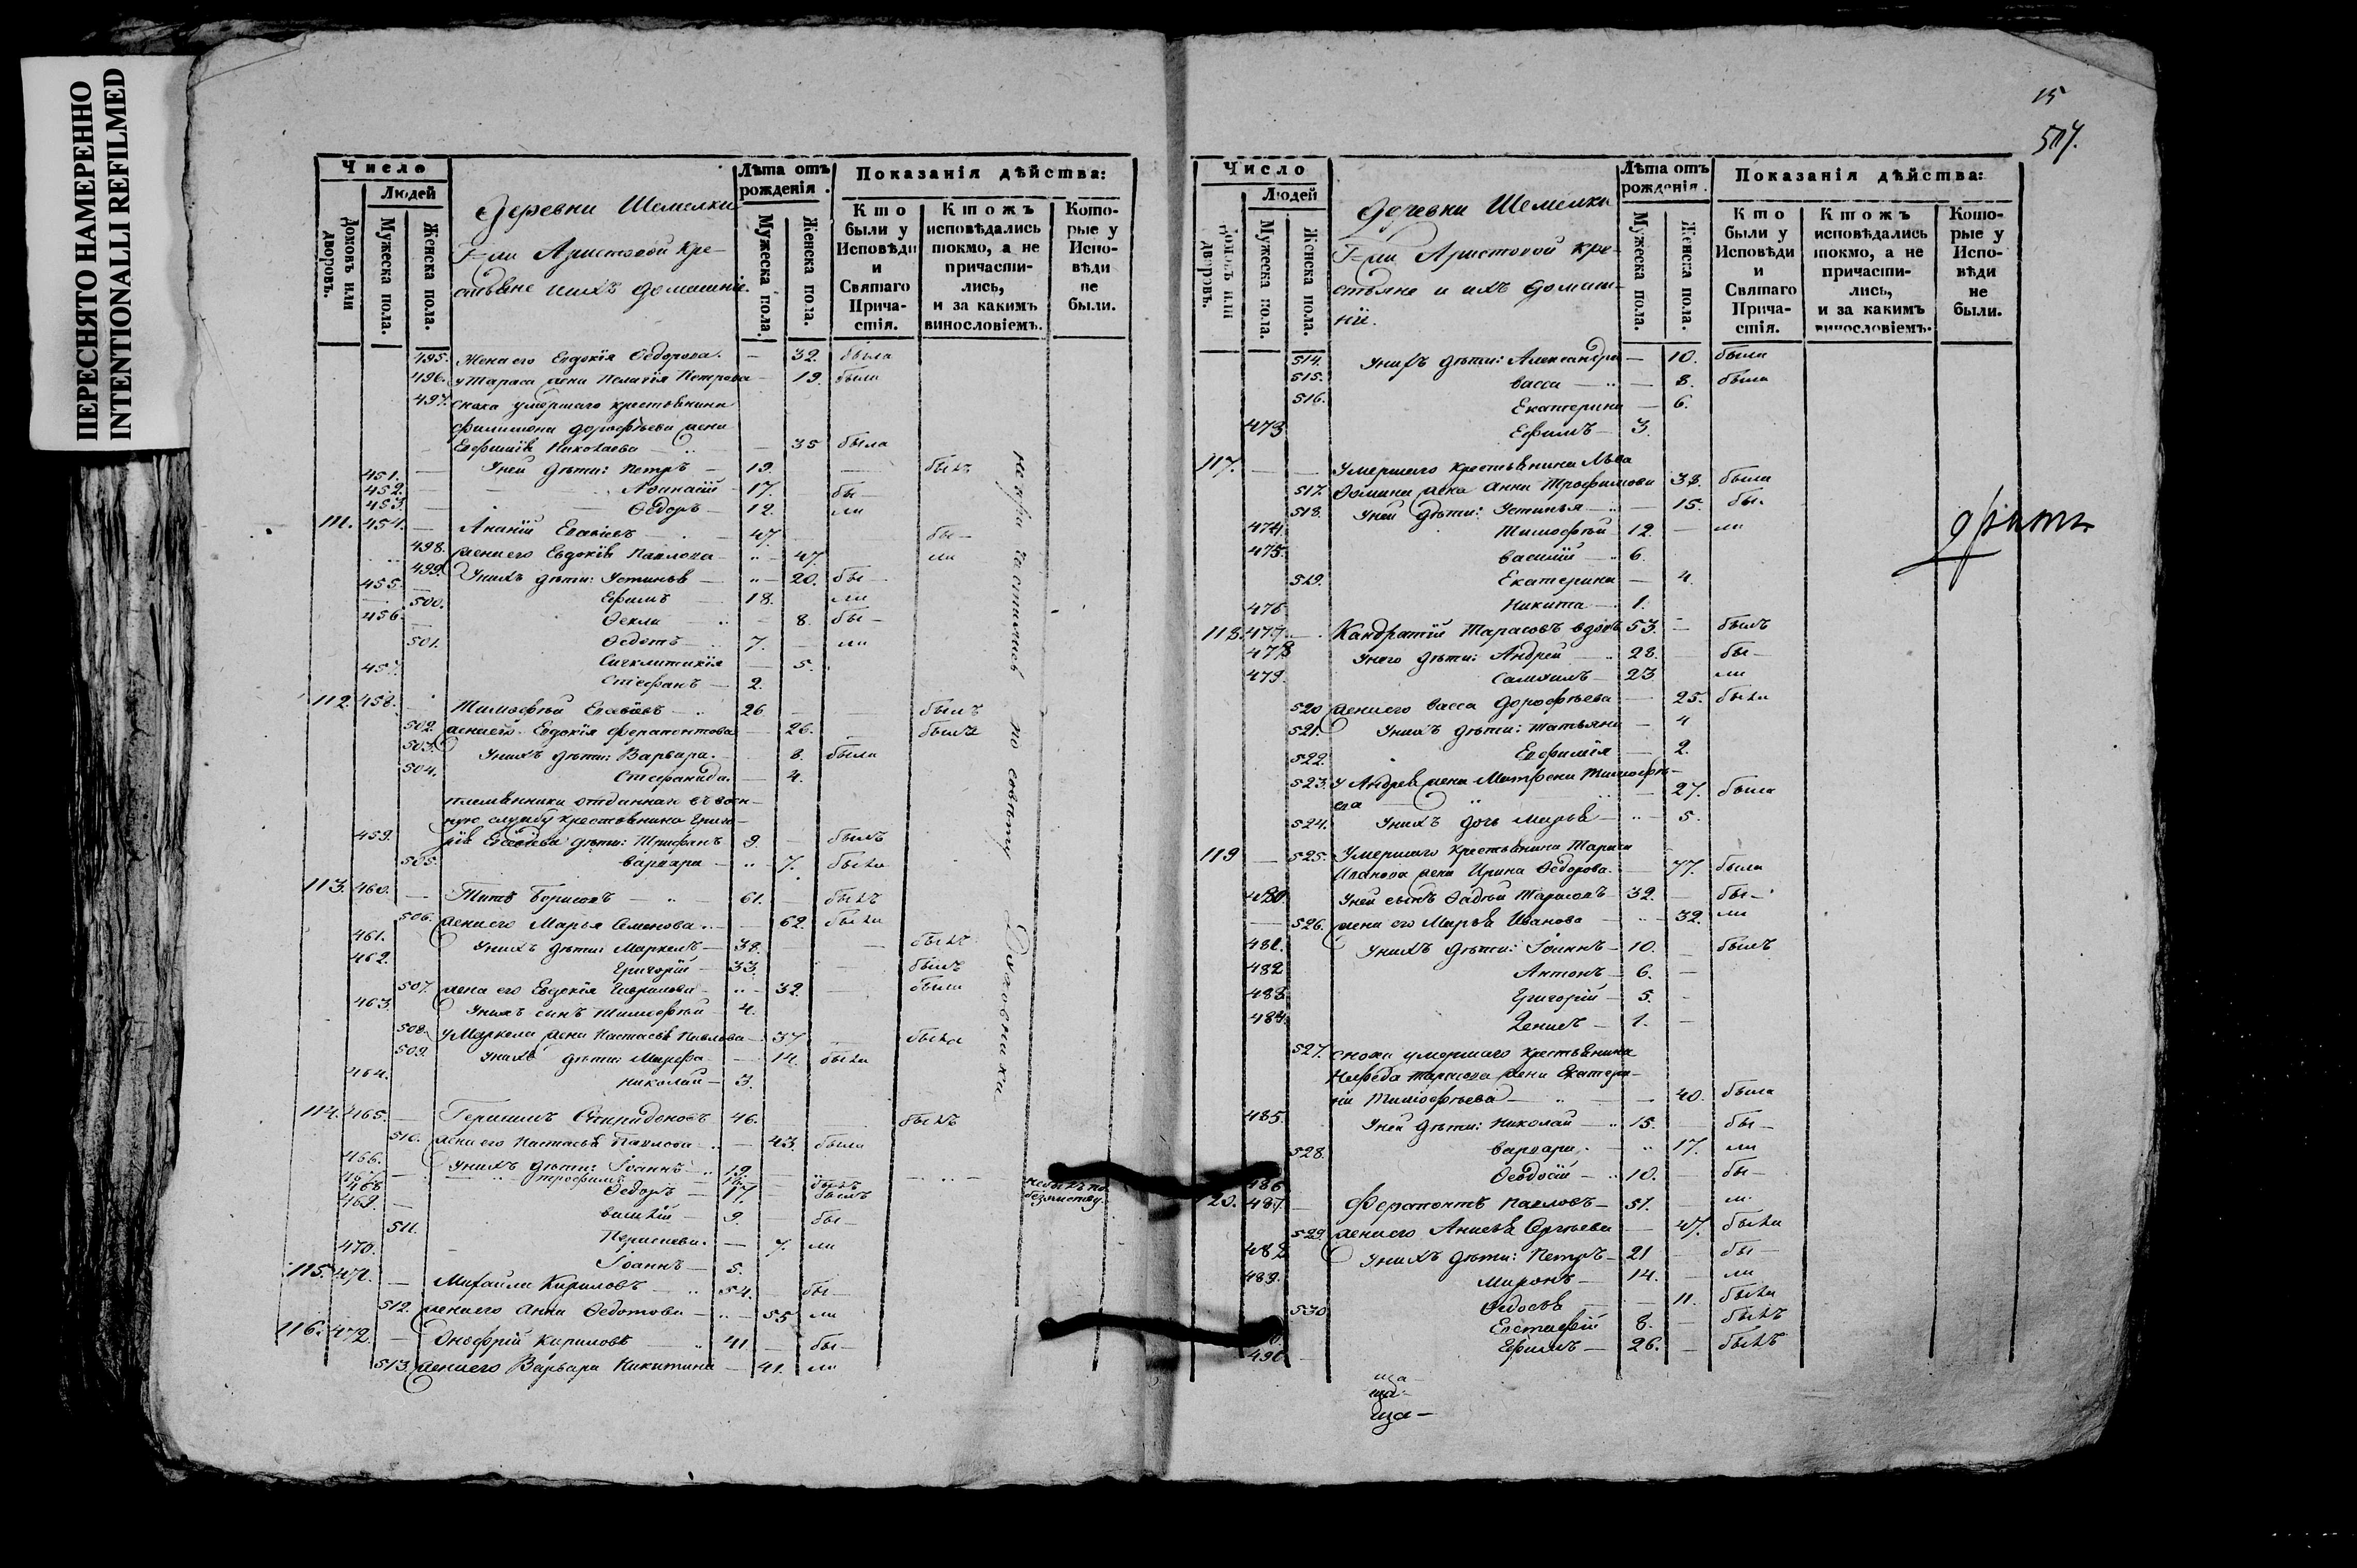 ПЕРЕСНЯТО НАМЕРЕННО
INTENTIONALLI REFILMED
Число
Людей
домовъ или дворовъ.
Мужеска пола.
Женска пола.
Деревни Шемелки
Г=жи Аристовой кре-
стьяне и ихъ домашніе.
Лѣта отъ рожденія.
Мужеска пола.
Женска пола.
Показанія дѣйства:
Кто были у Исповѣди и Святаго Причастія.
Ктожъ исповѣдались токмо, а не причастились, и за какимъ винословіемъ.
Которые у Исповѣди не были.
495. Жена его Евдокія Ѳедорова. — 32. была
496. у Тараса жена Пелагія Петрова — 19. была
497. сноха умершаго крестьянина
Филимона Дорофѣева жена
Евфимія Николаева — 35 была
451. У ней дѣти: Петръ — 19. былъ
452. Аѳанасій — 17. бы-
453. Ѳедоръ — 12. ли
111. 454. Ананій — 47. бы-
498. жена его Евдокія Павлова — 47. ли
499. У нихъ дѣти: Устинья — 20. бы-
455. Ефимъ — 18. ли
500. Ѳекла — 8. бы-
456. Ѳедотъ — 7. ли
501. Сигклитикія — 5.
457. Стефанъ — 2.
112. 458. Тимофей — 26 былъ
502. жена его Евдокія Ферапонтова — 26. была
503. У нихъ дѣти: Варвара. — 8. была
504. Стефанида. — 4.
племянники отданнаго въ воен-
ную службу крестьянина Григо-
459. рія дѣти: Трифонъ 9. былъ
505. Варвара — 7. была
113. 460. Титъ Борисовъ — 61. былъ
506. жена его Марья Семенова — 62. была
461. У нихъ дѣти: Маркелъ — 38. былъ
462. Григорій — 33. былъ
507. жена его Евдокія Гаврилова — 32. была
463. У нихъ сынъ Тимофей — 4.
508. у Маркела жена Настасья Павлова — 37 была
509. У нихъ дѣти: Марфа — 14. была
464. Николай — 3.
114. 465. Герасимъ Спиридоновъ 46. былъ
510. жена его Настасья Павлова — 43. была
466. У нихъ дѣти: Іоаннъ — 19. былъ
467. Трофимъ
468 Ѳедоръ — 17. былъ
небылъ по
469. Василій — 9. бы-
511. — 7. ли
470. Іоаннъ — 5.
115. 471. Михаилъ Кириловъ — 54. бы-
512. жена его Анна Ѳедотова — 55 ли
116. 472. Онофрій Кириловъ 41 бы-
513. жена его Варвара Никитина — 41. ли
по совѣту Духовника
15
507.
Число
Людей
домовъ или дворовъ.
Мужеска пола.
Женска пола.
Деревни Шемелки
Г=жи Аристовой кре-
стьяне и ихъ домаш-
ніе.
Лѣта отъ рожденія.
Мужеска пола.
Женска пола.
Показанія дѣйства:
Кто были у Исповѣди и Святаго Причастія.
Ктожъ исповѣдались токмо, а не причастились, и за какимъ винословіемъ.
Которые у Исповѣди не были.
514. У нихъ дѣти: Александра — 10. была
515. Васса — 8. была
516. Екатерина — 6.
473 Ефимъ — 3.
117. Умершаго крестьянина Льва
517. Ѳомина жена Анна Трофимова 38. была
518. У ней дѣти: Устинья — 15. бы-
474. Тимофей — 12. ли
475. Василій — 6.
519. Екатерина — 4.
476 Никита — 1.
118. 477. Кандратій Тарасовъ вдовъ 53. былъ
478 У него дѣти: Андрей — 28. бы-
479. Самуилъ — 23 ли
520 жена его Васса Дорофѣева — 25. была
521. У нихъ дѣти: Татьяна — 4
522. Евфимія — 2.
523. у Андрея жена Матрена Тимофѣ-
ева — 27. была
524. У нихъ дочь Марья — 5.
119 525. Умершаго крестьянина Тараса
Иванова жена Ирина Ѳедорова. — 77. была
480 У ней сынъ Ѳадѣй Тарасовъ — 32. бы-
526. жена его Марья Иванова — 32. ли
481. У нихъ дѣти: Іоаннъ — 10. былъ
482 Антонъ — 6.
483 Григорій — 5.
484. Денисъ — 1.
527. сноха умершаго крестьянина
Тарасова жена Екатери-
на Тимофѣева — 40. была
485. У ней дѣти: Николай — 15. бы-
528. Варвара. — 17. ли
486 Ѳеодосій — 10. бы-
20. 487. Ферапонтъ Павловъ — 51. ли
529. жена его Анисья Сергѣева — 47. была
488 У нихъ дѣти: Петръ — 21 бы-
489. Миронъ — 14. ли
530 Ѳедосья — 11. была
Евстафій 8. былъ
491. Ефимъ — 26. былъ
ща-
ща-
ща-